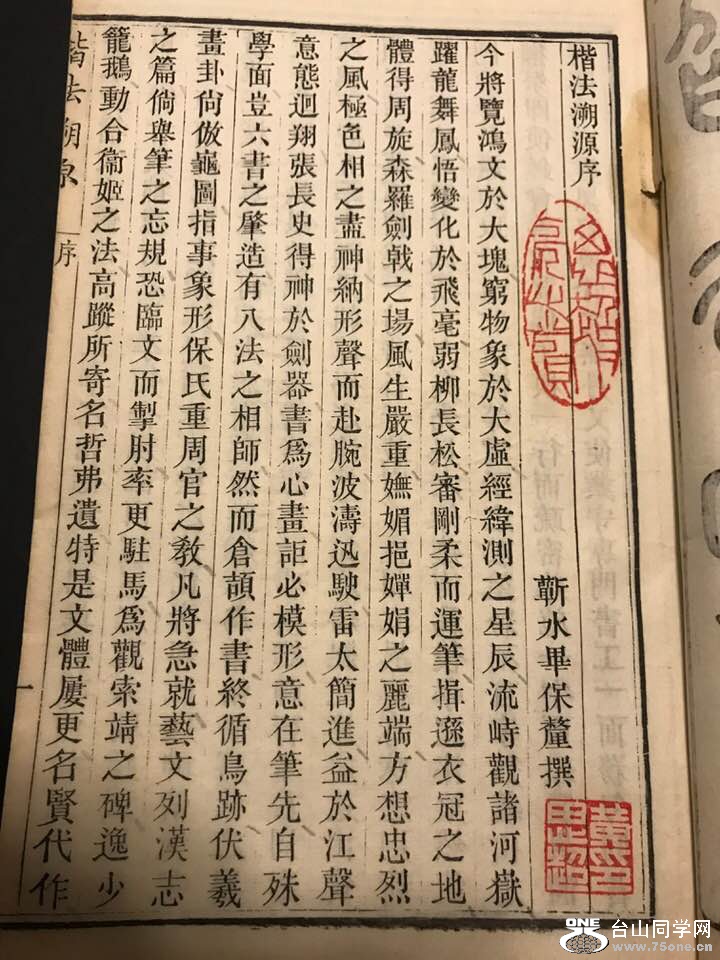 楷法溯源序
蘄水畢保釐撰
今將覽鴻文於大塊窮物象於大虛經緯測之星辰流峙觀諸河嶽
躍龍舞鳳悟變化於飛毫弱柳長松審剛柔而運筆揖遜衣冠之地
體得周旋森羅劍戟之場風生嚴重嫵媚挹嬋娟之麗端方想忠烈
之風極色相之盡神納形聲而赴腕波濤迅駛雷太簡進益於江聲
意態迴翔張長史得神於劍器書爲心畫詎必模形意在筆先自殊
學面豈六書之肇造有八法之相師然而倉頡作書終循鳥跡伏羲
畫卦尙倣龜圖指事象形保氏重周官之敎凡將急就藝文列漢志
之篇倘舉筆之忘規恐臨文而掣肘率更駐馬爲觀索靖之碑逸少
籠鵝動合衞姬之法高蹤所寄名哲弗遺特是文體屢更名賢代作
楷法溯原
序
一
ONE
台山同学网
www.75one.cn